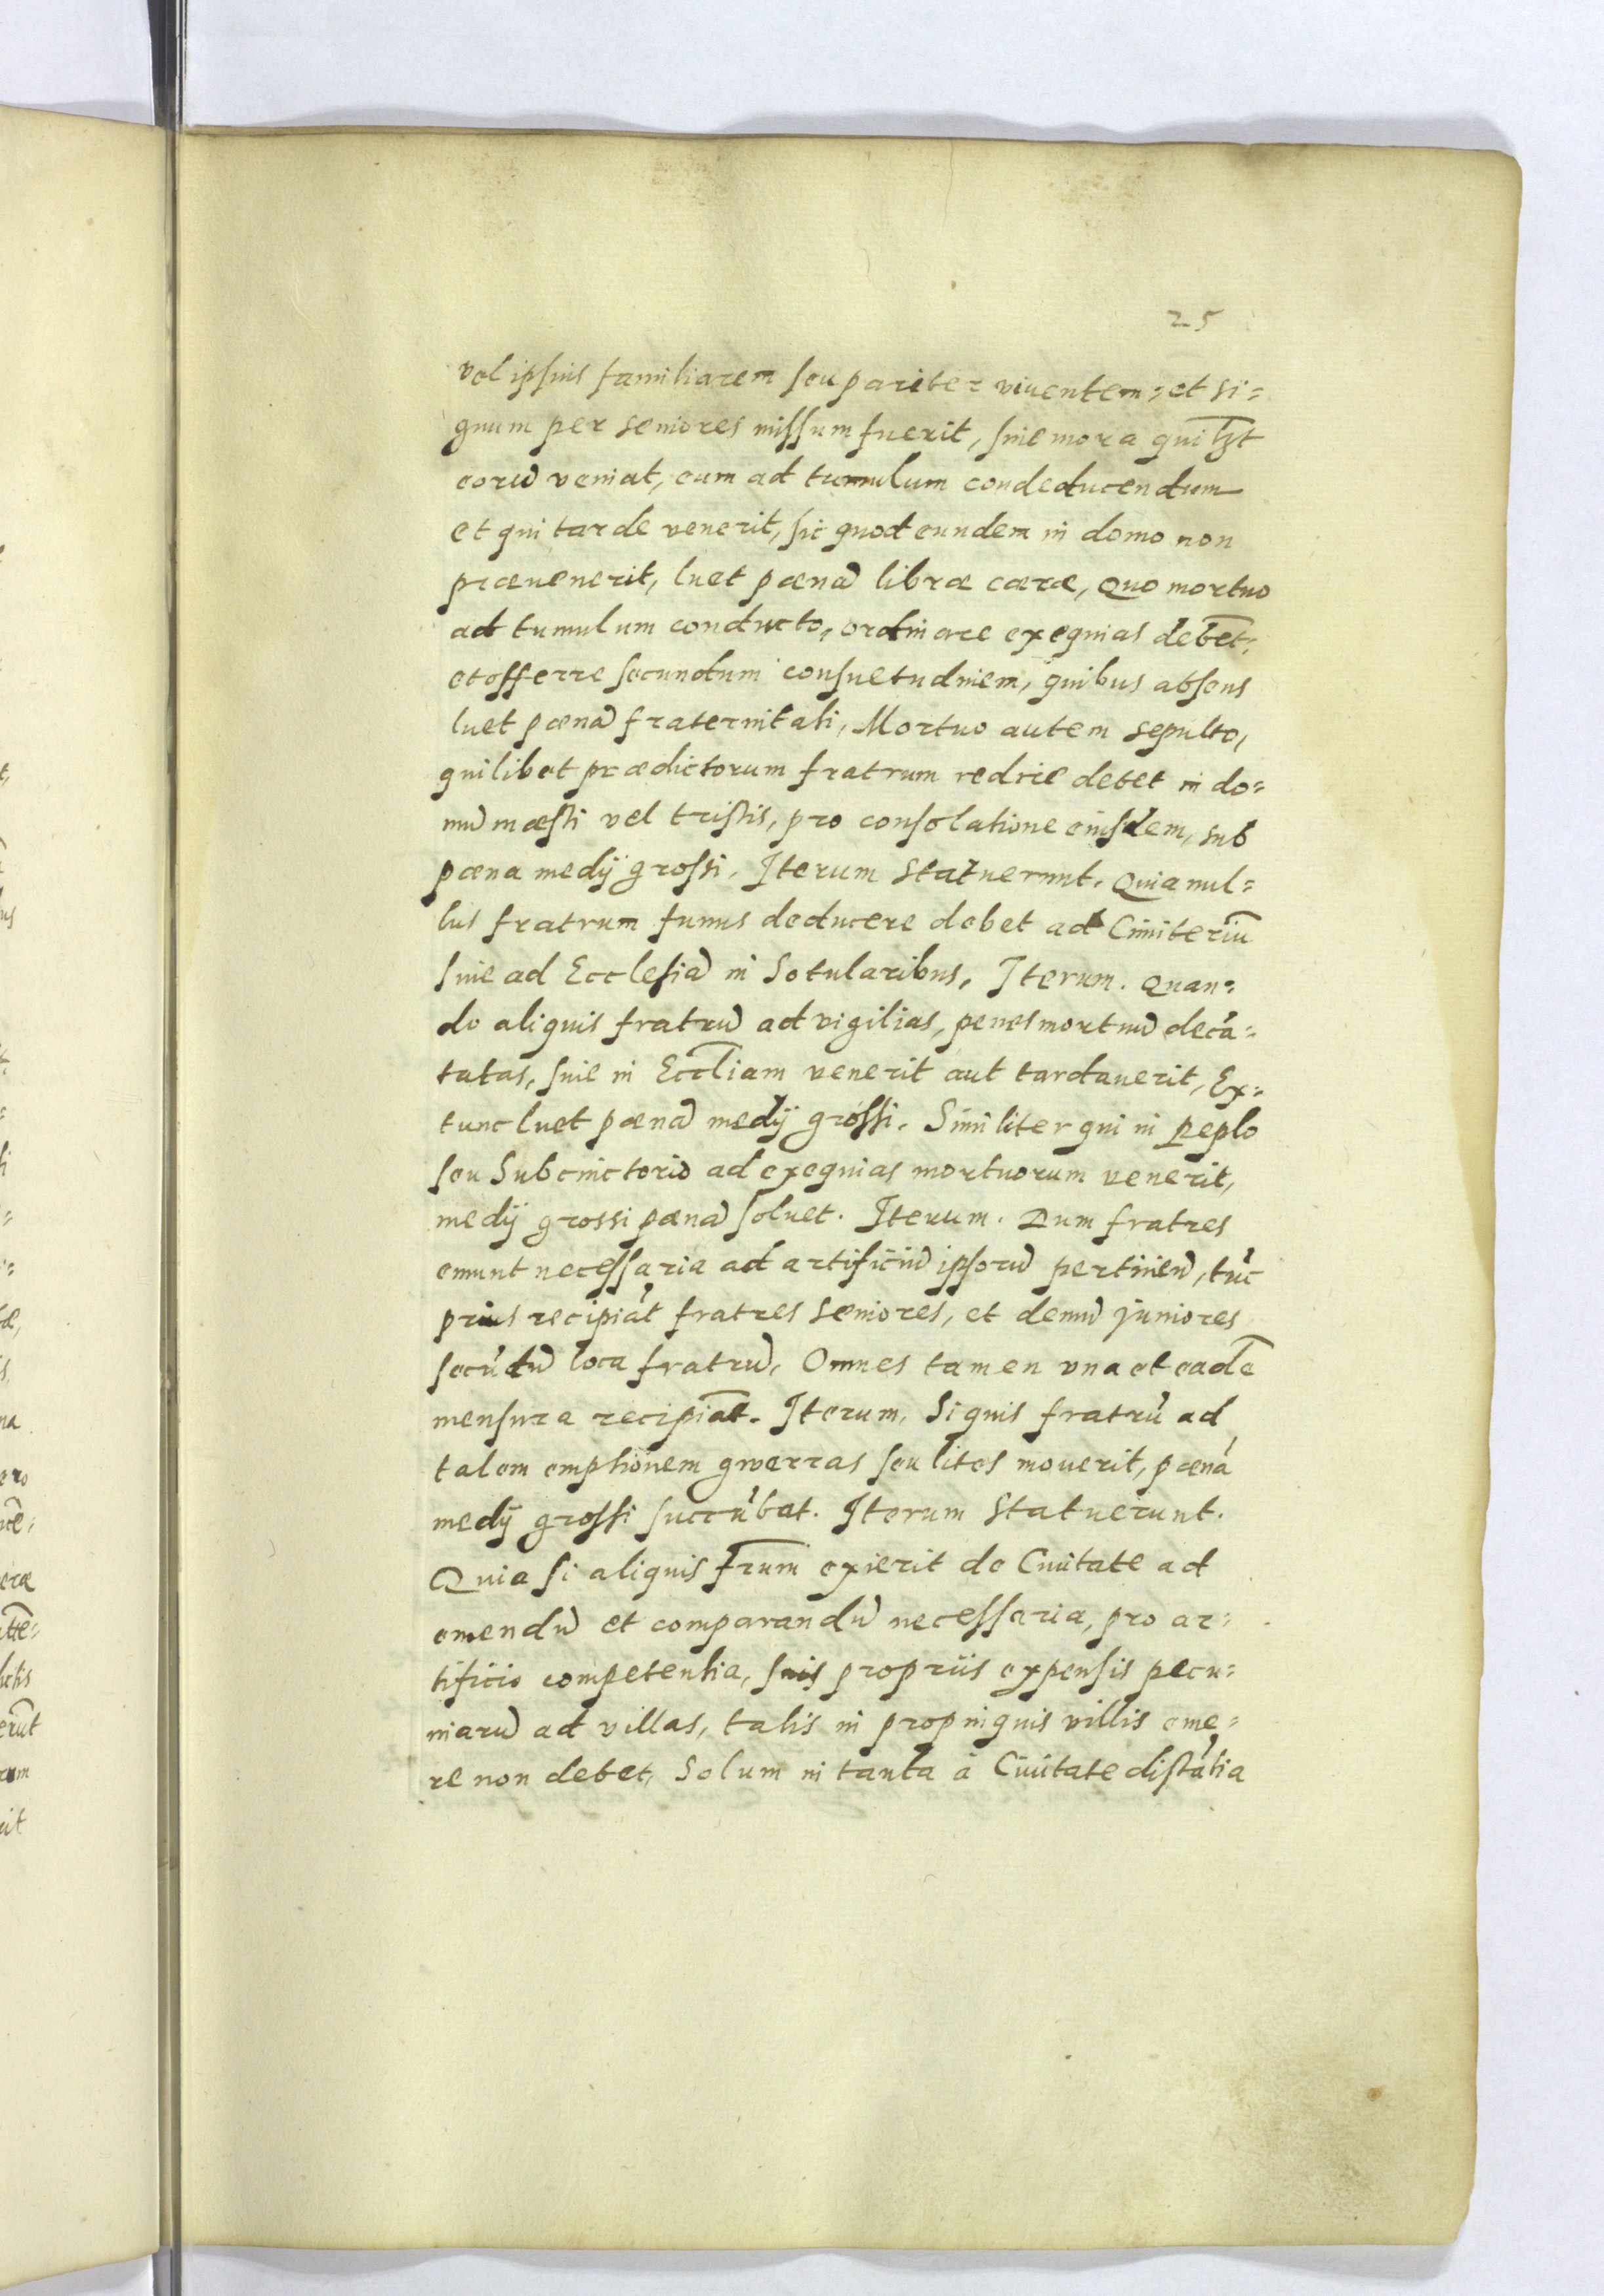 25
vel ipsius familiarem seu pariter viuentem, et si=
gnum per seniores missum fuerit, sine mora quilꝫt
eorũ veniat, eum ad tumulum condeducendum
et qui tarde venerit, sic quod eundem in domo non
præuenerit, luet pænã libræ cæræ, Quo mortuo
ad tumulum conducto, ordinare exequias debēt,
et offerre secundum consuetudinem, quibus absens
luet pænã fraternitati, Mortuo autem sepulto,
quilibet prædictorum fratrum redire debet in do=
mũ mæsti vel tristis, pro consolatione eiusdem, sub
pæna medij grossi, Iterum Statuerunt. Quia nul=
lus fratrum funus deducere debet ad Cimiteriũ
siue ad Ecclesiã in Sotularibus, Iterum. Quan=
do aliquis fratrũ ad vigilias, penes mortuũ decã=
tatas, siue in Eccl̄iam venerit aut tardauerit, Ex=
tunc luet pænã medij grossi. Similiter qui in peplo
seu Subcinctorio ad exequias mortuorum venerit,
medij grossi pænã soluet. Iterum. Dum fratres
emunt necessaria ad artificiũ ipsorũ pertineñ, tũc
prius recipiãt fratres seniores, et demũ juniores
secũdũ loca fratrũ, Omnes tamen vna et eadē
mensura recipiãt. Iterum, Si quis fratrũ ad
talem emptionem gwerras seu lites mouerit, pænã
medij grossi succũbat. Iterum Statuerunt.
Quia si aliquis fr̄um exierit de Ciuitate ad
emendũ et comparandũ necessaria, pro ar=
tificio competentia, suis propriis expensis pecu=
niarũ ad villas, talis in propinquis villis eme=
re non debet, Solum in tanta à Ciuitate distãtia